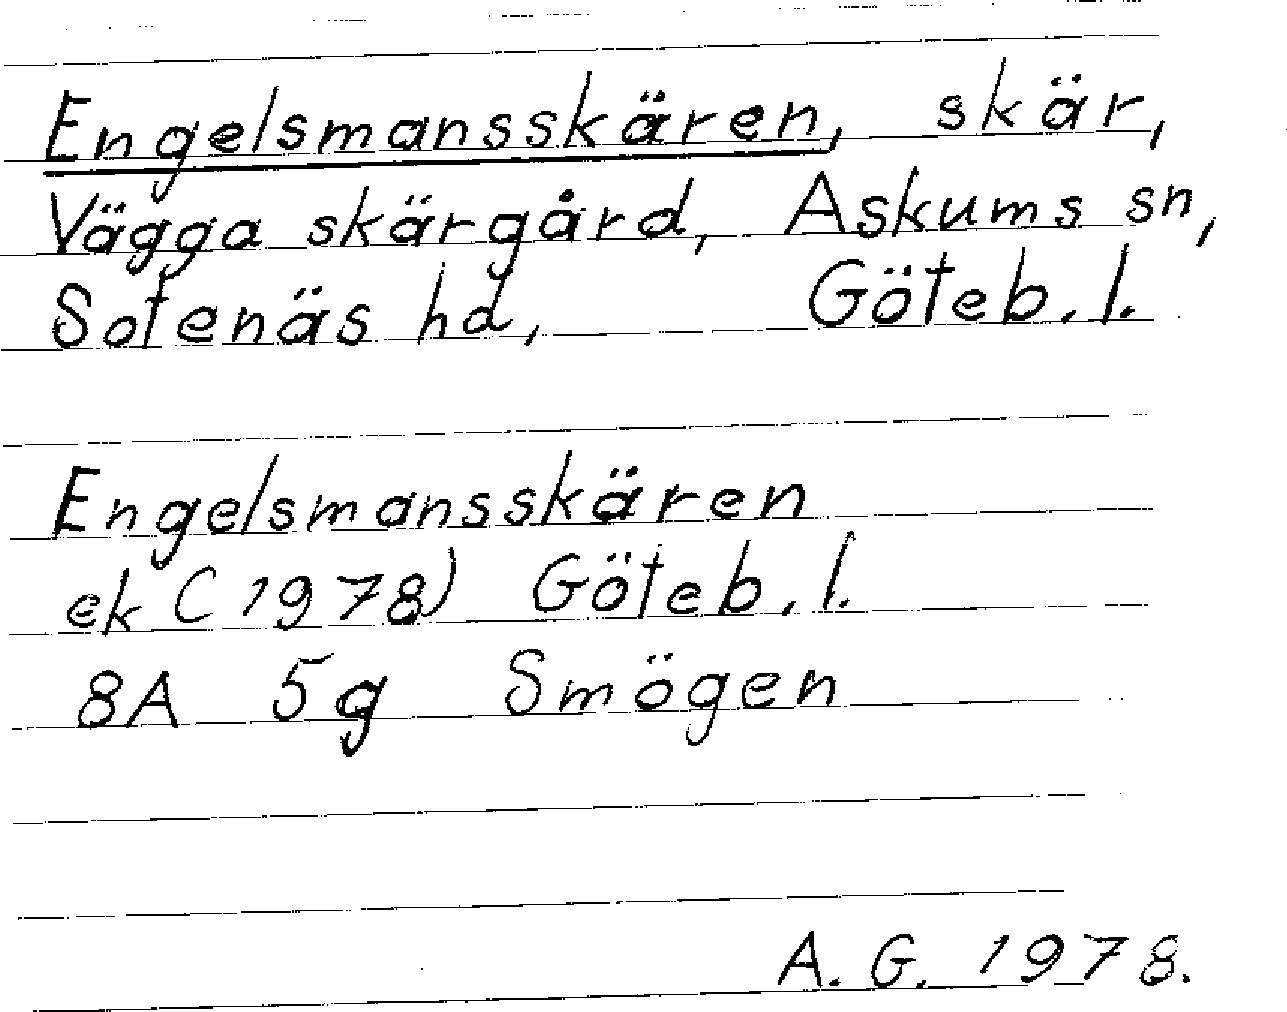 Engelsmansskären, skär,
Vägga skärgård, Askums sn,
Sotenäs hd, Göteb. l.
Engelsmansskären
ek (1978) Göteb. l.
8A 5g Smögen
A. G. 1978.